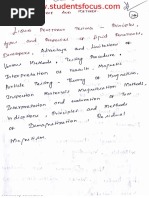 www.studentsfocus.com
AND METHOD
Liquid Penetrant Testing - Principles,
types and Properties of liquid Penetrants,
developers, Advantages and limitations of
Various Methods, Testing Procedure,
Interpretation of results. Magnetic
Particle Testing - Theory of Magnetism,
Inspection Materials Magnetisation Methods,
Interpretation and evaluation of Test
Indications, Principles and Methods
of Demagnetization, Residual
Magnetism.